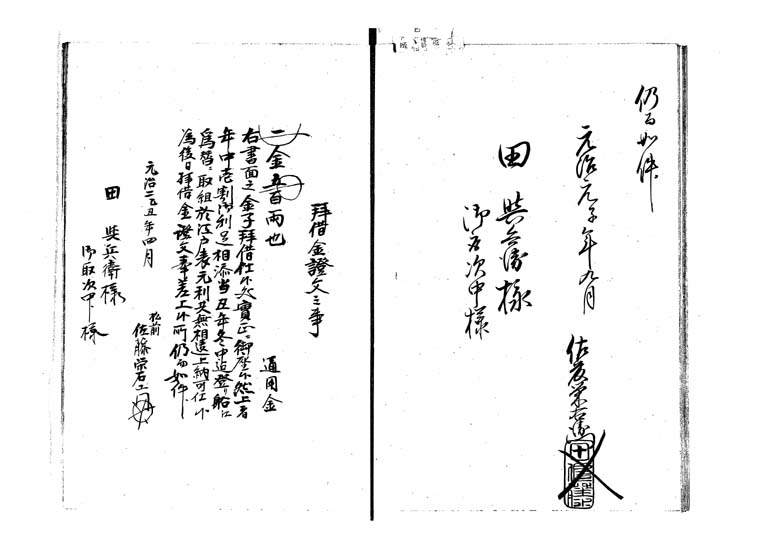 仍而如件
元治元子年九月
佐藤栄右衛門
田與兵衛様
御取次中様
拝借金證文之事
一金五百両也
通用金
右書面之金子拝借仕候処實正ニ御座候然上者
年中壱割御利足相添当丑年冬中迄登リ船江
為替取組於江戸表元利共無相違上納可仕候
為後日拝借金證文奉差上候所仍而如件
元治二丑年四月
松前
佐藤栄右エ門
田與兵衛様
御取次中様